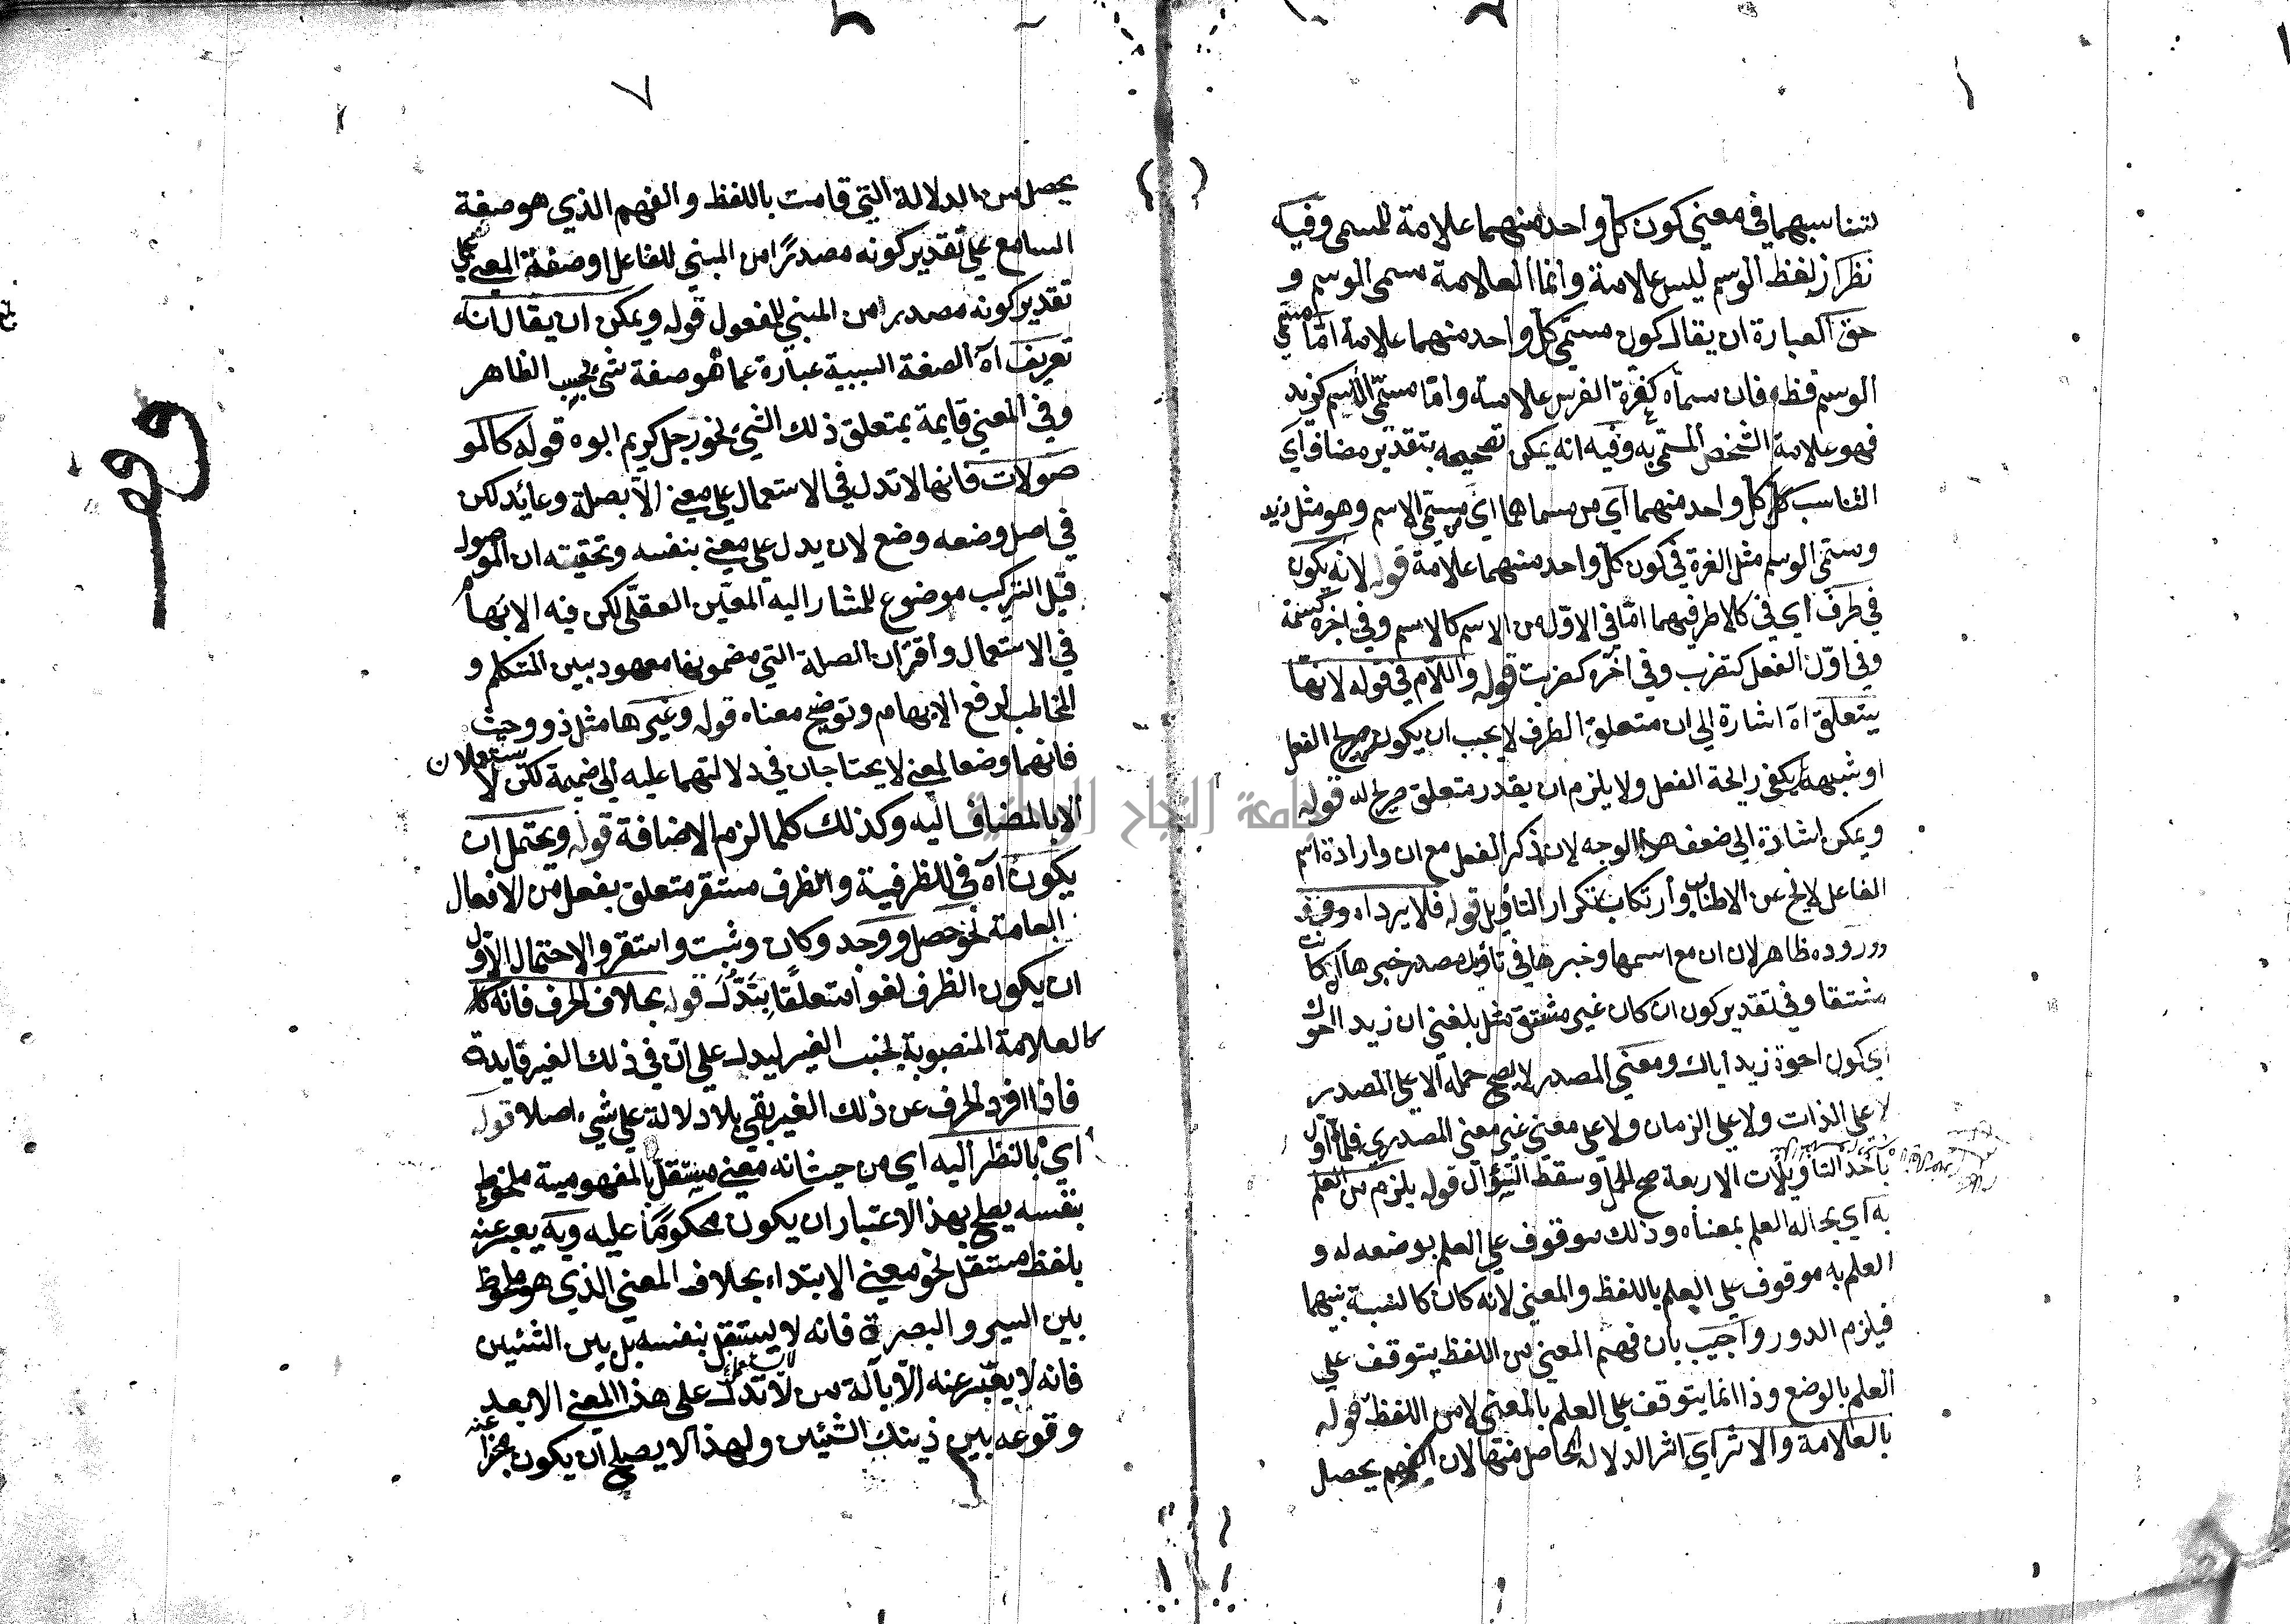 لتناسبهما في معنى كون كل واحد منهما علامة للمسمى وفيه
نظر اذ لفظ الوسم ليس علامة وانما العلامة مسمى الوسم و
حق العبارة ان يقال كون مسمى كل واحد منهما علامة اما مسمى
الوسم فظ فان سماه كغرة الفرس علامة واما مسمى الاسم كزيد
فهو علامة الشخص المسمى به وفيه انه يمكن تصحيحه بتقدير مضاف اي
التناسب كل كل واحد منهما اي من مسماهما اي مسمى الاسم وهو مثل زيد
ومسمى الوسم مثل الغرة في كون كل واحد منهما علامة قوله لانه يكون
في طرف اي في كلا طرفيهما اما في الاول من الاسم كالاسم وفي اخره كسمة
وفي اول الفعل كتضرب وفي اخره كضربت قوله واللام في قوله لانها
يتعلق اه اشارة الى ان متعلق الظرف لا يجب ان يكون صريح الفعل
او شبهه يكفي رايحة الفعل ولا يلزم ان يقدر متعلق صريح له قوله
ويمكن اشارة الى ضعف هذا الوجه لان ذكر الفعل مع ان وارادة اسم
الفاعل لا يخ عن الاطناب وارتكاب تكرار التأويل قوله فلا يرد اه
وروده ظاهر لان ان مع اسمها وخبرها في تأويل مصدر خبرها ان كانت
مشتقا وفي تقدير كون ان كان غير مشتق مثل بلغني ان زيدا اخوك
اي كون اخوة زيد اياك ومعنى المصدر لا يصح حمله الا على المصدر
لا على الذات ولا على الزمان ولا على معنى غير معنى المصدري فلما اول
باحد التأويلات الاربعة صح الحمل وسقط السؤال قوله يلزم من العلم
به اي بحاله العلم بمعناه وذلك موقوف على العلم بوضعه له و
العلم به موقوف على العلم باللفظ والمعنى لانه كان كالنسبة بينهما
فيلزم الدور واجيب بان فهم المعنى من اللفظ يتوقف على
العلم بالوضع وذا انما يتوقف على العلم بالمعنى لا من اللفظ قوله
بالعلامة والاثر اي اثر الدلالة الحاصل منها لان الفهم يحصل
٧
يحصل من الدلالة التي قامت باللفظ والفهم الذي هو صفة
السامع على تقدير كونه مصدرا من المبني للفاعل او صفة المعنى على
تقدير كونه مصدرا من المبني للمفعول قوله ويمكن ان يقال انه
تعريف اه الصفة السببية عبارة عما هو صفة شئ بحسب الظاهر
وفي المعنى قايمة بمتعلق ذلك الشئ نحو رجل كريم ابوه قوله كالمو
صولات فانها لا تدل في الاستعمال على معنى الا بصلة وعائد لكن
في اصل وضعه وضع لان يدل على معنى بنفسه وتحقيقه ان الموصول
قبل التركيب موضوع للمشار اليه المعين العقلي لكن فيه الابهام
في الاستعمال واقتران الصلة التي مضمونها معهود بين المتكلم و
المخاطب لرفع الابهام وتوضيح معناه قوله وغيرها مثل ذو وحيث
فانهما وضعا لمعنى لا يحتاجان في دلالتهما عليه الى ضميمة لكن لا يستعملان
الا بالمضاف اليه وكذلك كلما لزم الاضافة قوله ويحتمل ان
يكون اه في للظرفية والظرف مستقر متعلق بفعل من الافعال
العامة نحو حصل ووجد وكان وثبت واستقر والاحتمال الاول
ان يكون الظرف لغوا متعلقا بتدل قوله بخلاف الحرف فانه كا
كالعلامة المنصوبة لجنب الغير ليدل على ان في ذلك الغير فايدة
فاذا افرد الحرف عن ذلك الغير بقي بلا دلالة على شيء اصلا قوله
اي بالنظر اليه اي من حيث انه معنى مستقل بالمفهومية ملحوظ
بنفسه يصلح بهذا الاعتبار ان يكون محكوما عليه وبه يعبر عنه
بلفظ مستقل نحو معنى الابتداء بخلاف المعنى الذي هو ملحوظ
بين السير والبصرة فانه لا يستقل بنفسه بل بين الشئين
فانه لا يعبر عنه الا بآلة من لا تدل على هذا المعنى الا بعد
وقوعه بين ذينك الشئين ولهذا لا يصلح ان يكون مخبرا عنه
وقف
جامعة النجاح الوطنية